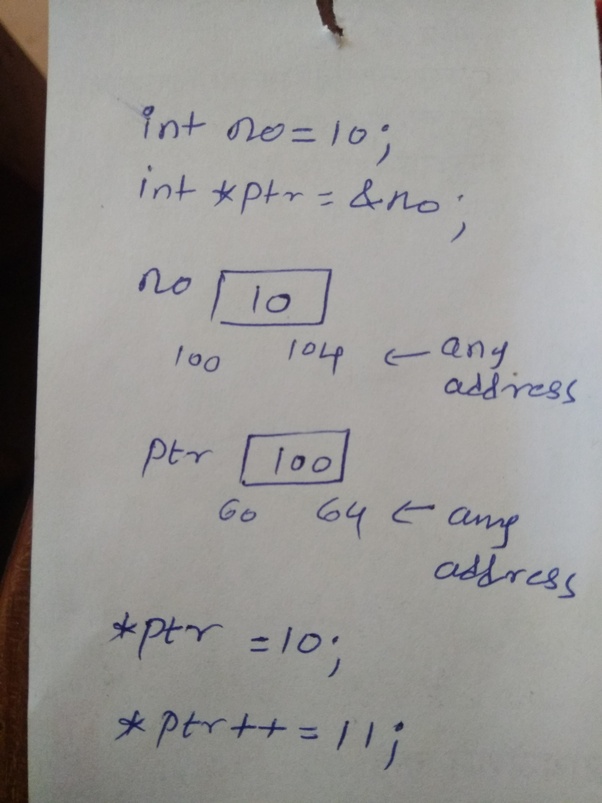 int no = 10;
int *ptr = &no;
no 10
100 104 ← any
address
ptr 100
60 64 ← any
address
*ptr = 10;
*ptr++ = 11;